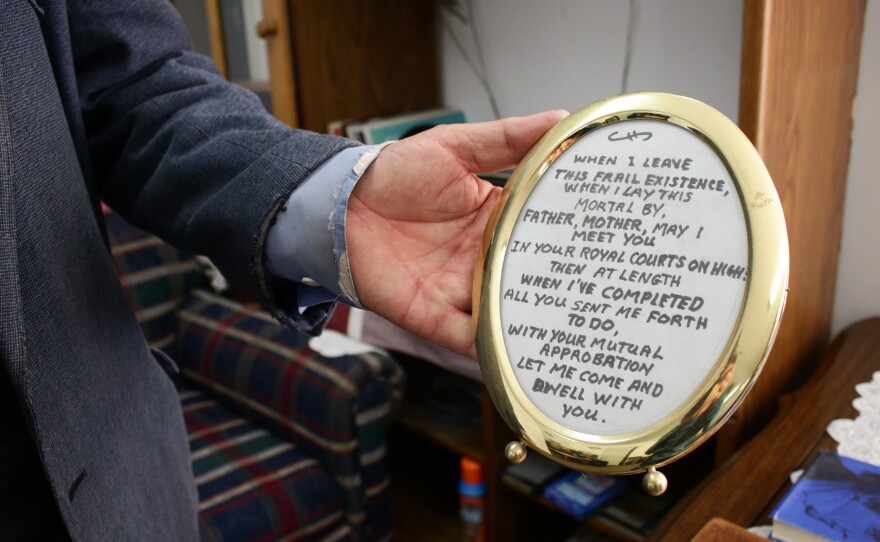 WHEN I LEAVE
THIS FRAIL EXISTENCE,
WHEN I LAY THIS
MORTAL BY,
FATHER, MOTHER, MAY I
MEET YOU
IN YOUR ROYAL COURTS ON HIGH?
THEN AT LENGTH
WHEN I'VE COMPLETED
ALL YOU SENT ME FORTH
TO DO,
WITH YOUR MUTUAL
APPROBATION
LET ME COME AND
DWELL WITH
YOU.